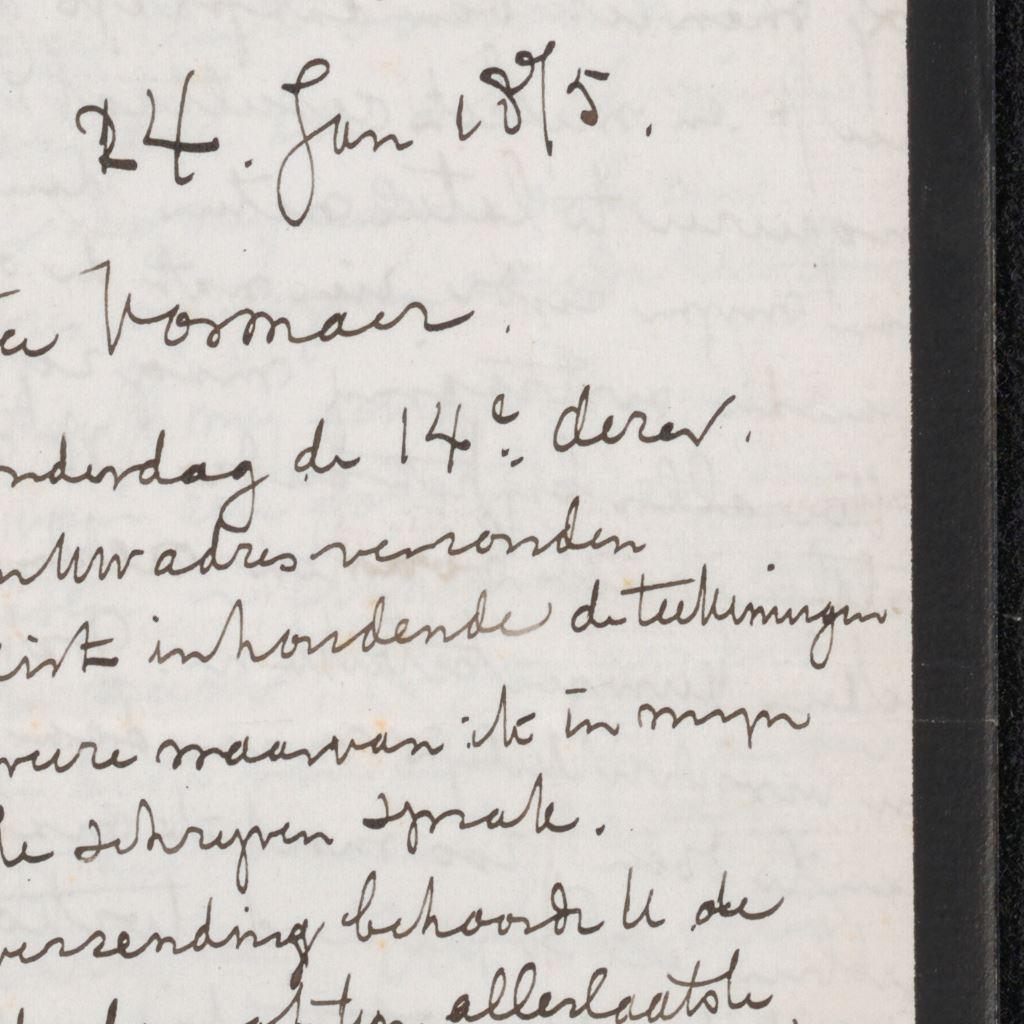 24. Jan 1875.
Vosmaer.
nderdag de 14e derer.
n Uw adres verzonden
kist inhoudende de teekeningen
waarvan ik in mijn
de schrijven sprak.
verzending behoorde U de
allerlaatste